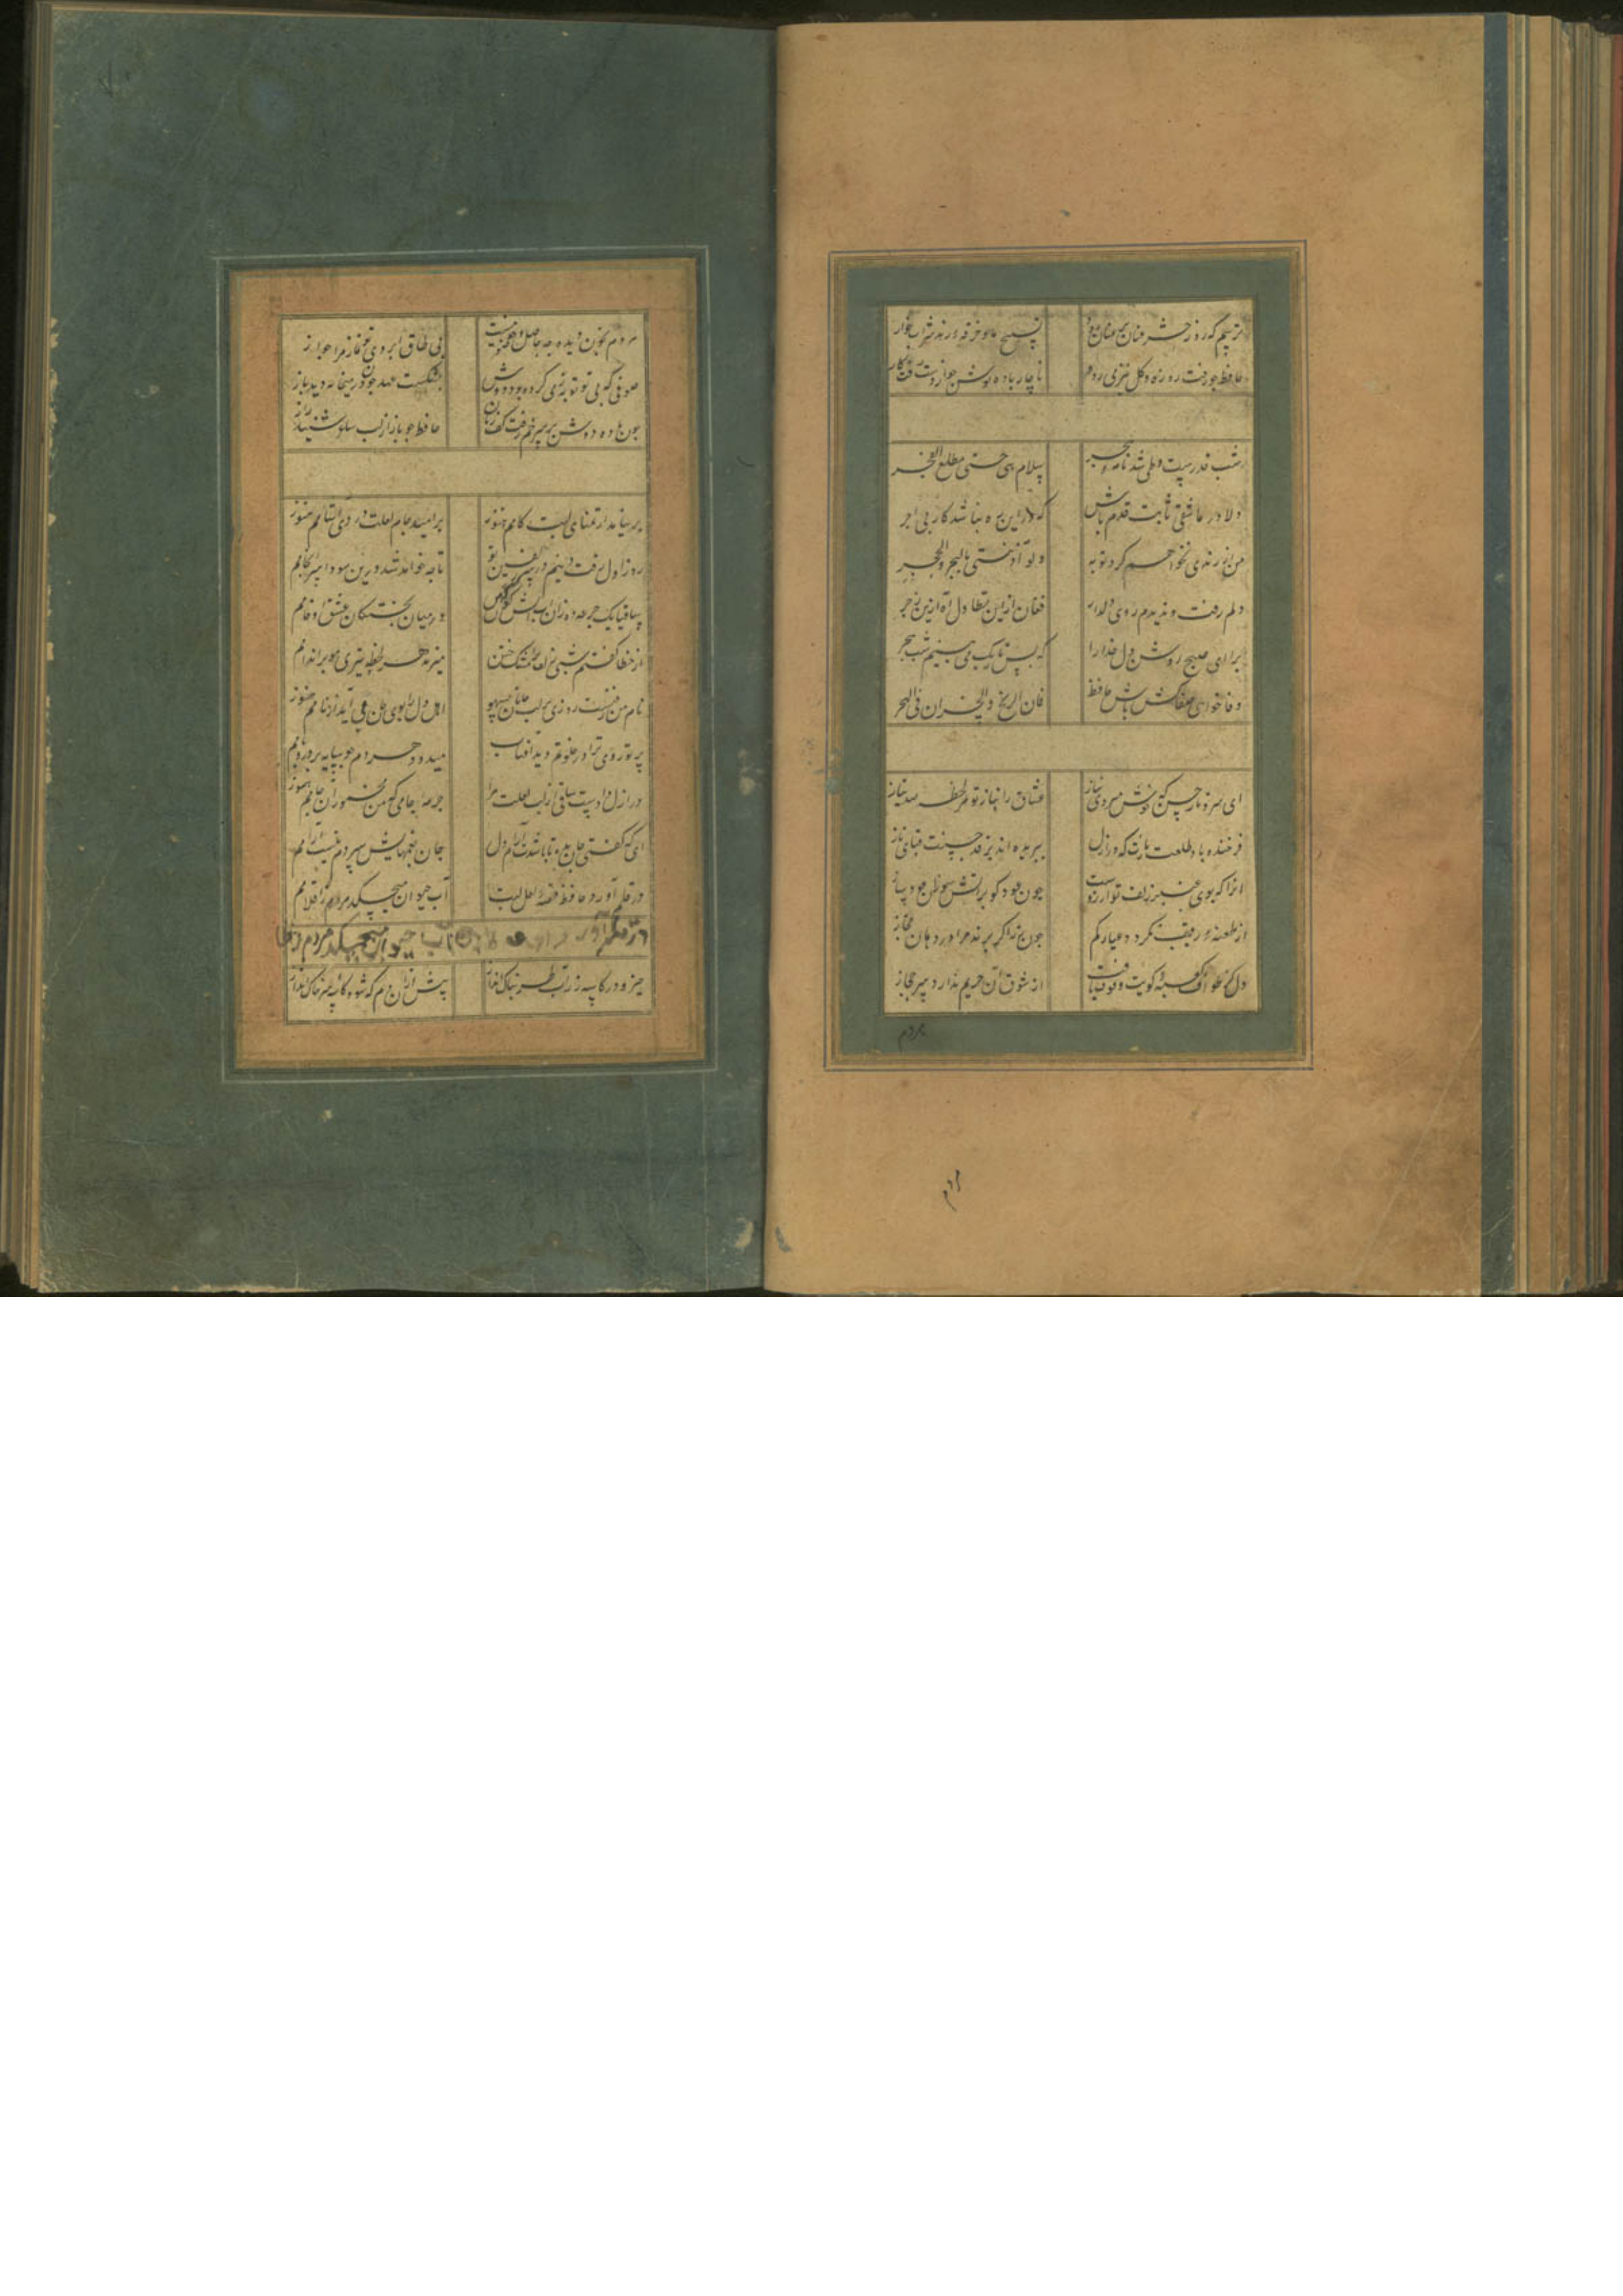 ترسم که روز حشر عنان بر عنان رود تسبیح ما و خرقه رند شرابخوار
حافظ چو رفت روزه و گل نیز می رود ناچار باده نوش که از دست رفت کار
شب قدرست و طی شد نامه هجر سلام هی حتی مطلع الفجر
دلا در عاشقی ثابت قدم باش که در این ره نباشد کار بی اجر
من از رندی نخواهم کرد توبه ولو آذیتنی بالهجر والحجر
دلم رفت و ندیدم روی دلدار فغان از این تطاول آه ازین زجر
برای صبح روشن دل خدارا که بس تاریک می بینم شب هجر
وفا خواهی جفاکش باش حافظ فان الربح والخسران فی التجر
ای سرو ناز حسن که خوش میروی بناز عشاق را بناز تو هر لحظه صد نیاز
فرخنده باد طلعت نازت که در ازل ببریده اند بر قد سروت قبای ناز
انرا که بوی عنبر زلف تو آرزوست چون عود کو بر آتش سوزان بسوز و ساز
از طعنه رقیب نکردد عیار کم چون زر اکر برند مرا در دهان کاز
دل کز طواف کعبه کویت وقوف یافت از شوق آن حریم ندارد سر حجاز
هر دم
هر دم
هر دم بخون دیده چه حاصل وضو چو نیست بی طاق ابروی تو نماز مرا جواز
صوفی که بی تو توبه ز می کرده بود دوش بشکست عهد چون در میخانه دید باز
چون باده دوش بر سر خم رفت کف زنان حافظ چو باز از لب ساقی شنید راز
بر نیامد از تمنای لبت کامم هنوز بر امید جام لعلت دردی آشامم هنوز
روز اول رفت دینم در سر زلفین تو تا چه خواهد شد درین سودا سرانجامم
ساقیا یک جرعه ده زان آب آتش کون که من در میان پختکان عشق او خامم
از خطا کفتم شبی زلف ترا مشک ختن میزند هر لحظه تیری مو بر اندامم
نام من رفتست روزی بر لب جانان بسهو اهل دل را بوی جان می آید از نامم هنوز
پرتو روی ترا در خلوتم دید آفتاب میدود هر دم چو سایه بر در و بامم
در ازل دادست ساقی از لب لعلت مرا جرعه جامی که من مخمور آن جامم هنوز
ای که کفتی جان بده تا باشدت آرام دل جان بغمهایش سپردم نیست آرامم
در قلم آورد حافظ قصه لعل لبت آب حیوان میچکد هر دم ز اقلامم
در قلم آورد آب حیوان میچکد هر دم ز
خیز و در کاسه زر آب طربناک انداز پیش از آن دم که شود کاسه سر خاک انداز